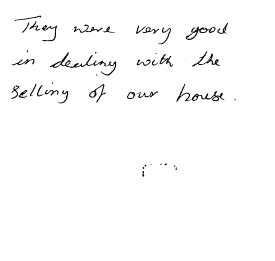 They were very good
in dealing with the
selling of our house.